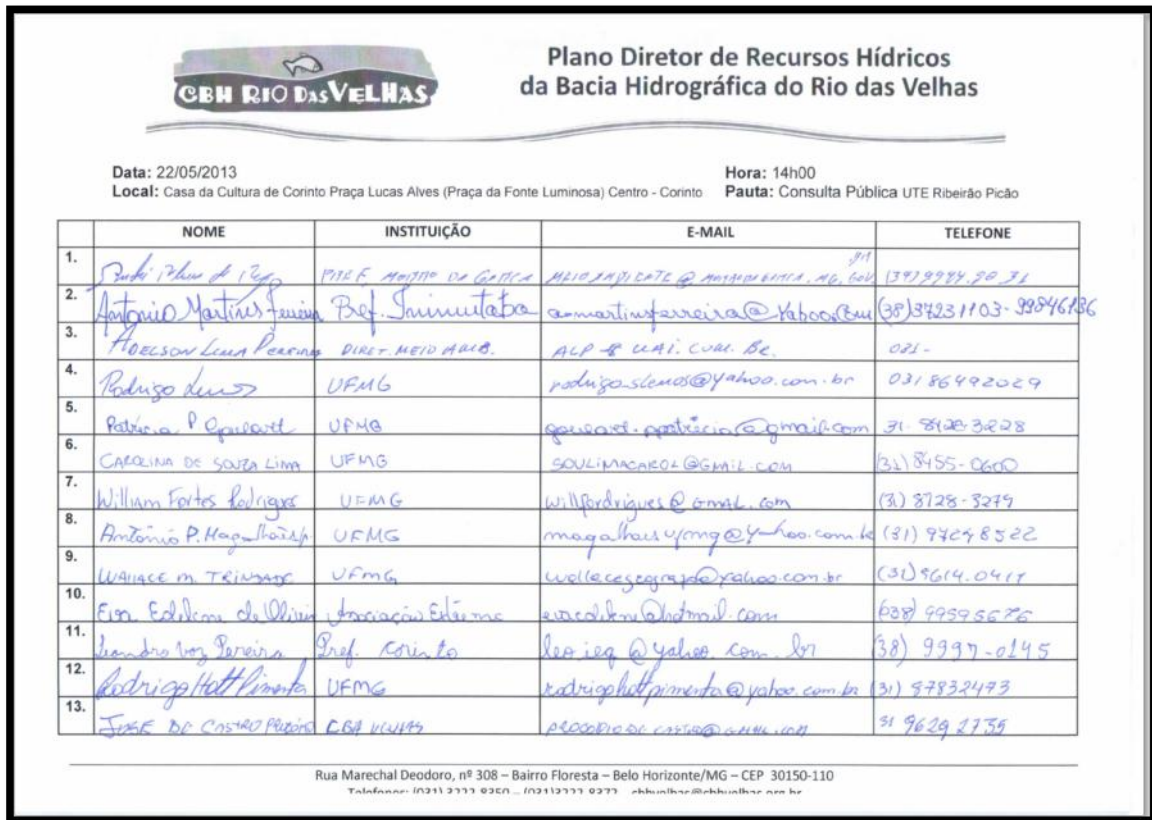 CBH RIO DAS VELHAS
Plano Diretor de Recursos Hídricos
da Bacia Hidrográfica do Rio das Velhas
Data: 22/05/2013 Hora: 14h00
Local: Casa da Cultura de Corinto Praça Lucas Alves (Praça da Fonte Luminosa) Centro - Corinto Pauta: Consulta Pública UTE Ribeirão Picão
NOME INSTITUIÇÃO E-MAIL TELEFONE
1. PREF. MORRO DA GARÇA
2. Antonio Martins Ferreira Pref. Inimutaba aamartinsferreira@Yahoo.Com (38)37231103-99846136
3. ADELSON DIRET. MEIO AMB. 031-
4. Rodrigo Lemos UFMG rodrigoslemos@yahoo.com.br 03186492029
5. Patrícia P Goulart UFMG goulart.ppatricia@gmail.com
6. CAROLINA DE SOUZA LIMA UFMG SOULIMACAROL@GMAIL.COM (31)8455-0600
7. William Fortes Rodrigues UFMG willfordrigues@GMAIL.com (31) 8728-3279
8. Antônio P. Magalhães Jr. UFMG magalhaesufmg@yahoo.com.br (31) 97278522
9. WALLACE M. TRINDADE UFMG wallacegeografo@yahoo.com.br (31)9614.0417
10. Eva de Associação @hotmail.com (038) 99595676
11. Leandro Vaz Pereira Pref. Corinto leo ieq @yahoo.com.br (38) 9997-0145
12. Rodrigo Hott Pimenta UFMG rodrigohottpimenta@yahoo.com.br (31) 87832473
13. JOSÉ DE CASTRO PROCÓPIO CBH VELHAS PROCOPIODECASTRO@GMAIL.COM 31 9629 2735
Rua Marechal Deodoro, nº 308 – Bairro Floresta – Belo Horizonte/MG – CEP 30150-110
Telefones: (031) 3222-8350 – (031)3222-8372 cbhvelhas@cbhvelhas.org.br